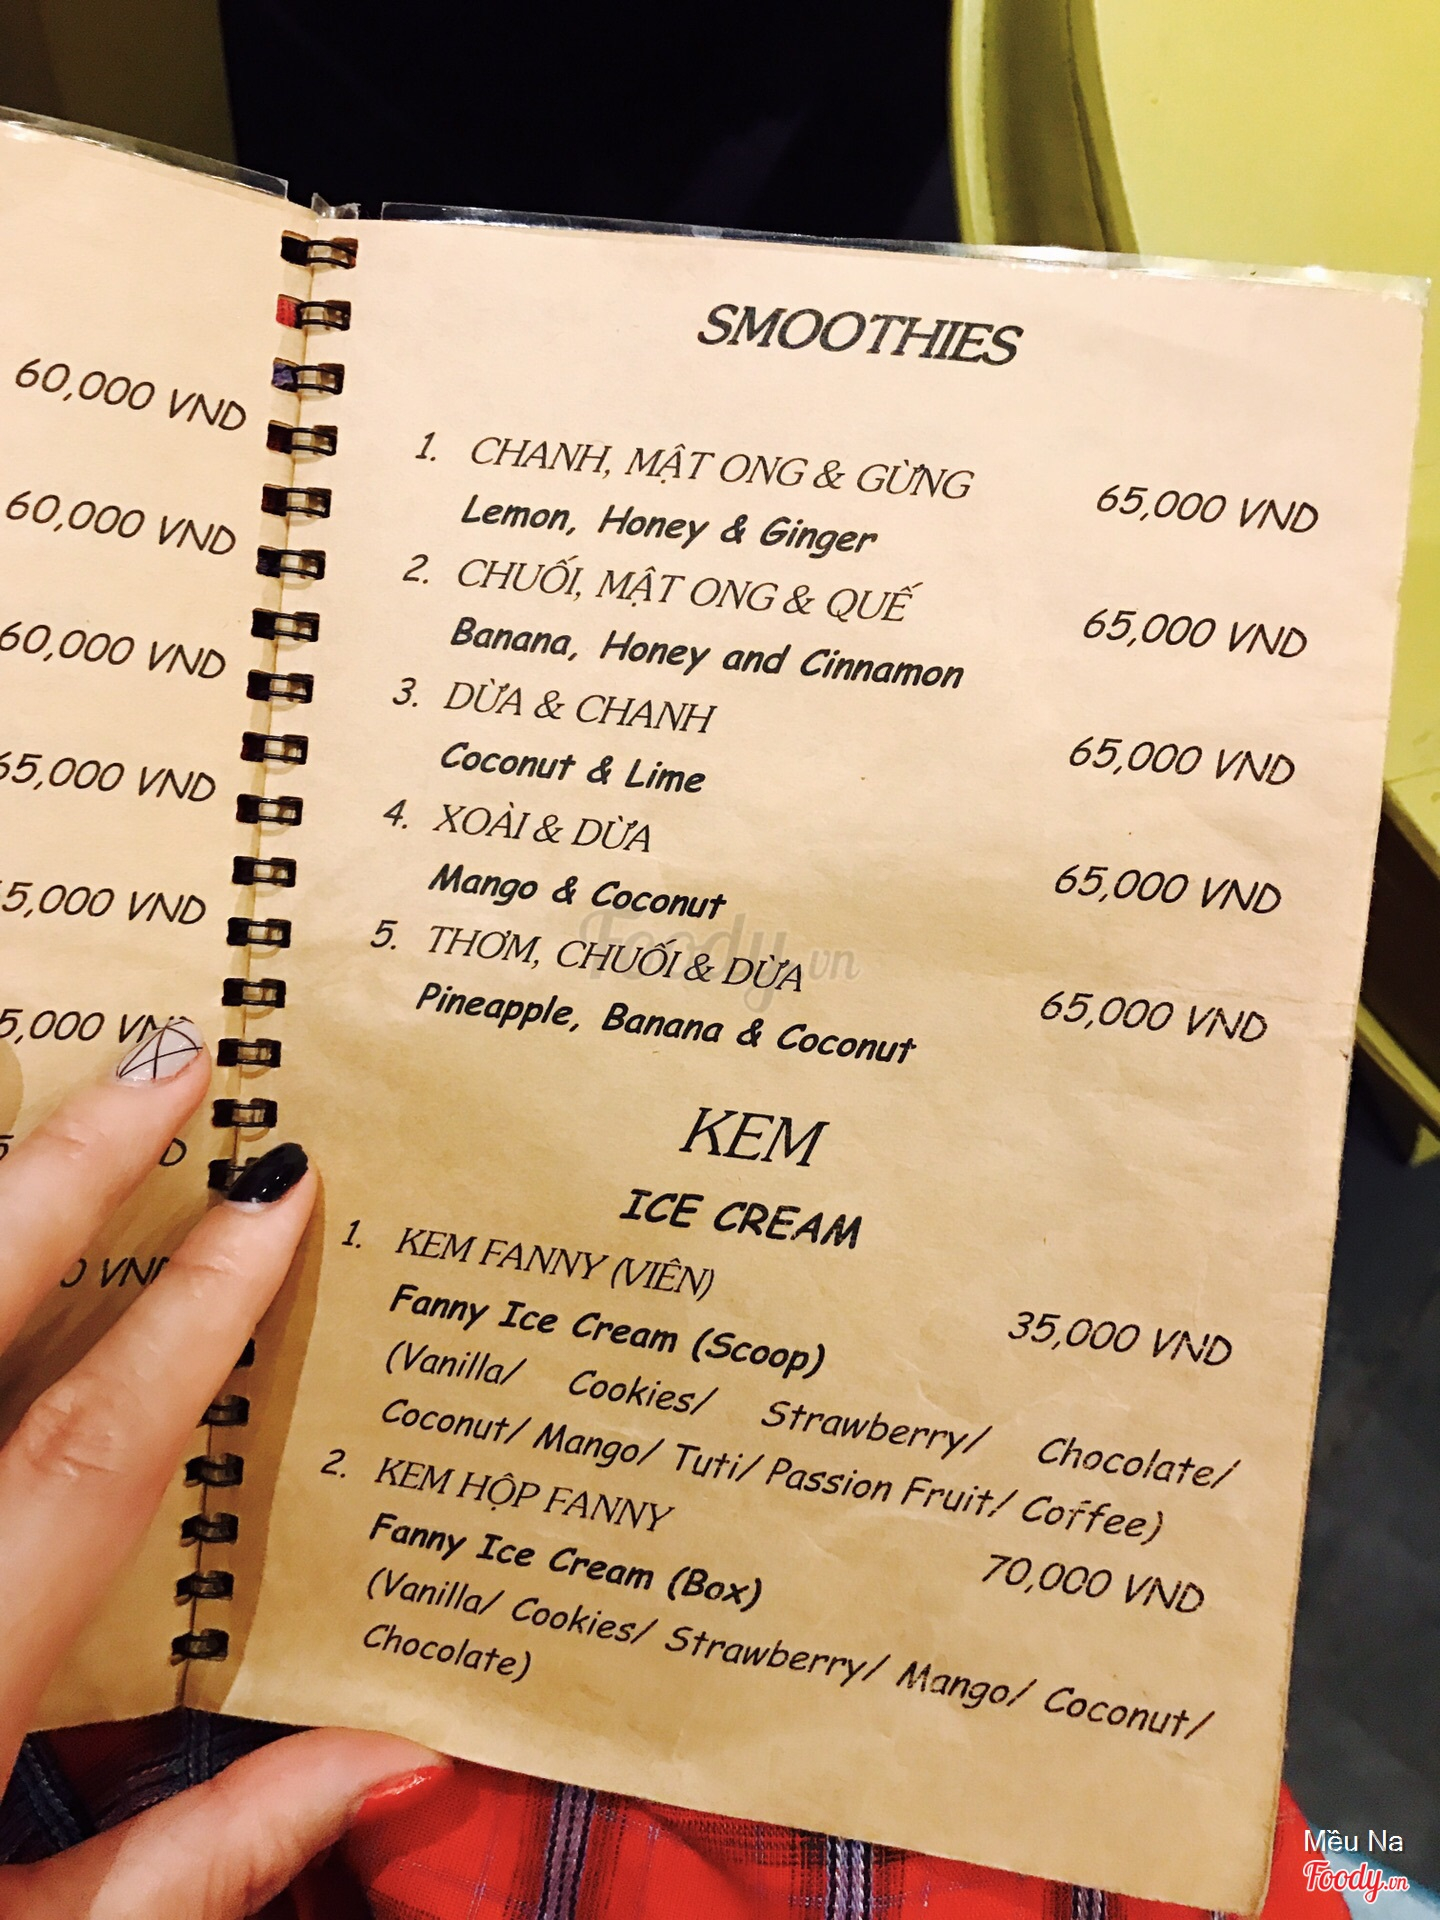 60,000 VND
60,000 VND
60,000 VND
65,000 VND
5,000 VND
5,000
SMOOTHIES
1. CHANH, MẬT ONG & GỪNG 65,000 VND
Lemon, Honey & Ginger
2. CHUỐI, MẬT ONG & QUẾ 65,000 VND
Banana, Honey and Cinnamon
3. DỪA & CHANH 65,000 VND
Coconut & Lime
4. XOÀI & DỪA 65,000 VND
Mango & Coconut
5. THƠM, CHUỐI & DỪA 65,000 VND
Pineapple, Banana & Coconut
KEM
ICE CREAM
1. KEM FANNY (VIÊN)
Fanny Ice Cream (Scoop) 35,000 VND
(Vanilla/ Cookies/ Strawberry/ Chocolate/
Coconut/ Mango/ Tuti/ Passion Fruit/ Coffee)
2. KEM HỘP FANNY
Fanny Ice Cream (Box) 70,000 VND
(Vanilla/ Cookies/ Strawberry/ Mango/ Coconut/
Chocolate)
Foody.vn
Mều Na
Foody.vn